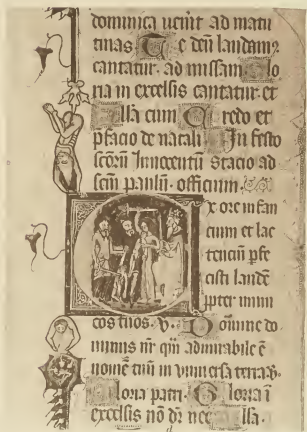 dominica uenit ad matu
tinas Te deū laudamus
cantatur. ad missam Glo
ria in excelsis cantatur et
Alla cum Credo et
p̄facio de natali In festo
scōrū Innocentū Stacio ad
scm̄ paulū. officium.
Ex ore infan
cium et lac
tenciū pfe
cisti laudē
ppter inimi
cos tuos. v. Domine do
minus nr̄ qm̄ admirabile ē
nomē tuū in vniuersa terra.
Gloria patri. Gloria ī
excelsis nō dr̄ nec Alla.